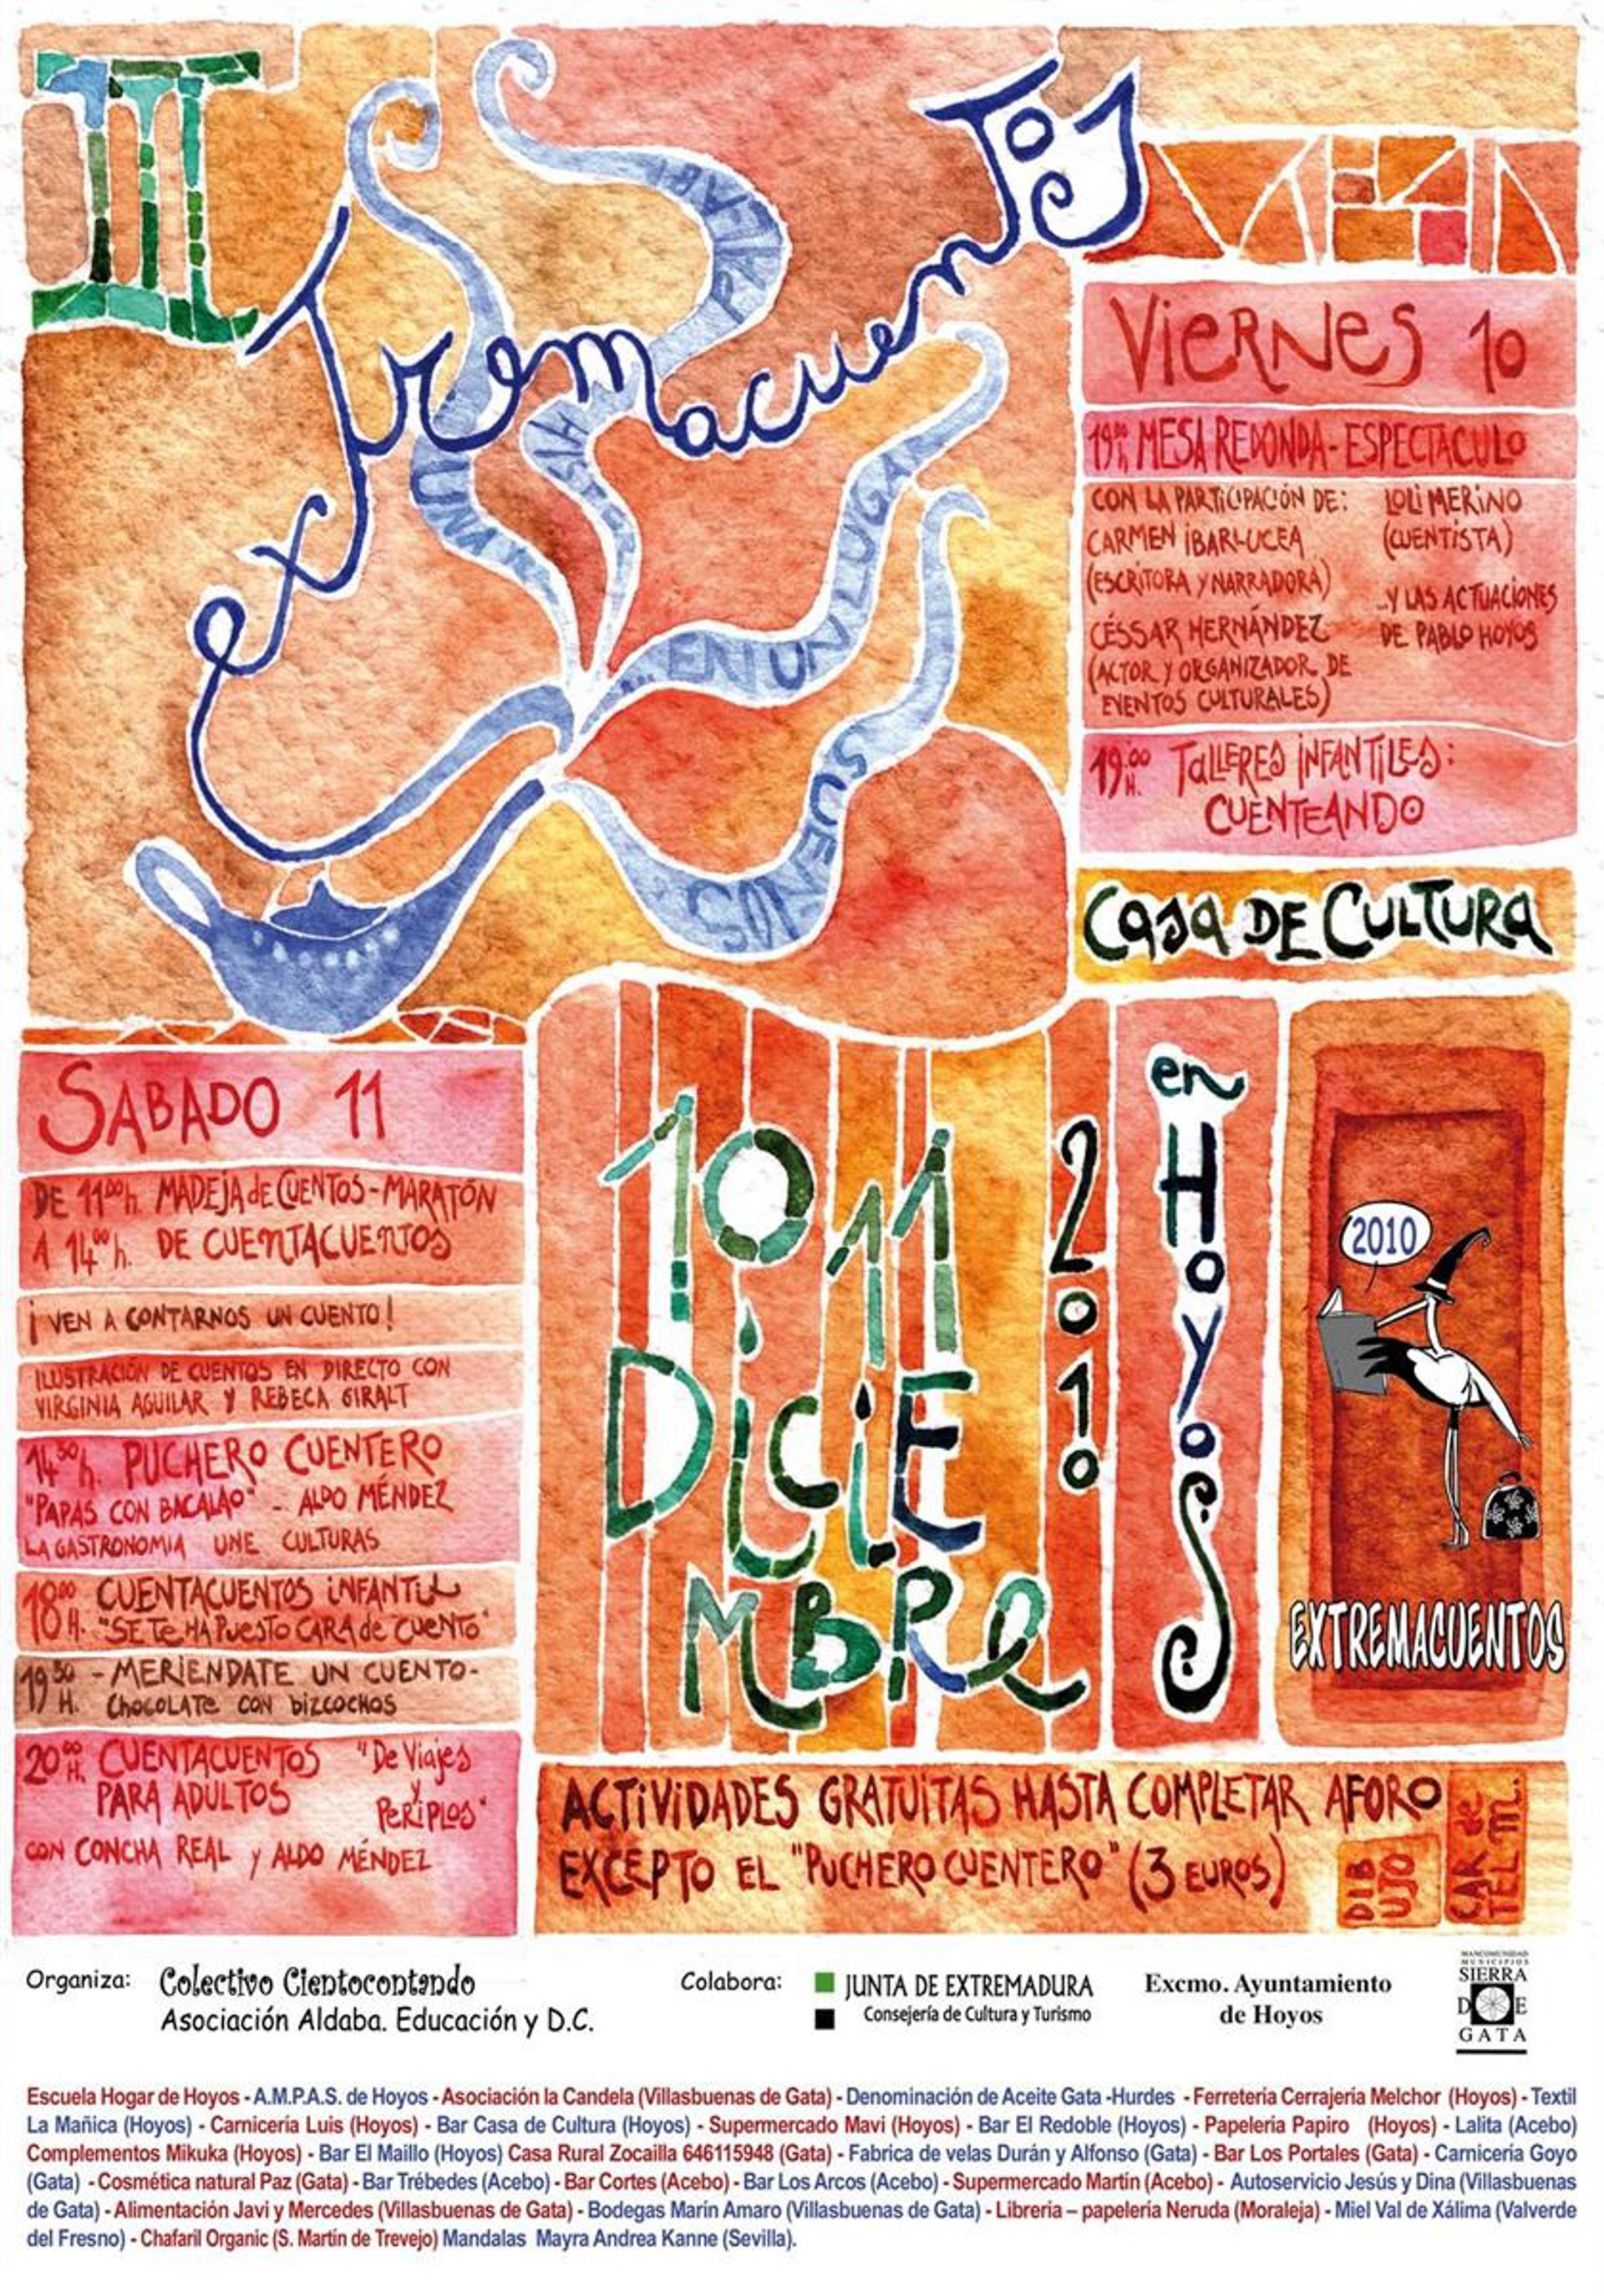 III
exTremacuenTos
PALABRA
UNA
HISTORIA
... EN UN LUGAR
SUEÑOS
VieRNes 10
19:00 h MESA REDONDA - ESPECTACULO
CON LA PARTICIPACIÓN DE:
CARMEN IBARLUCEA
(ESCRITORA Y NARRADORA)
CÉSSAR HERNÁNDEZ
(ACTOR Y ORGANIZADOR DE
EVENTOS CULTURALES)
LOLI MERINO
(CUENTISTA)
...Y LAS ACTUACIONES
DE PABLO HOYOS
19:00 H. TALLERES INFANTILES:
CUENTEANDO
CASA DE CULTURA
SABADO 11
DE 11:00 h. MADEJA de CUENTOS - MARATÓN
A 14:00 h. DE CUENTACUENTOS
¡ VEN A CONTARNOS UN CUENTO !
ILUSTRACIÓN DE CUENTOS EN DIRECTO CON
VIRGINIA AGUILAR Y REBECA GIRALT
14:30 h. PUCHERO CUENTERO
"PAPAS CON BACALAO" - ALDO MÉNDEZ
LA GASTRONOMIA UNE CULTURAS
18:00 H. CUENTACUENTOS INFANTIL
"SE Te HA PUESTO CARA de CUENTO"
19:30 H. - MERIENDATE UN CUENTO -
CHOCOLATE CON BIZCOCHOS
20:00 H. CUENTACUENTOS
PARA ADULTOS
"De Viajes
y
PERIPLOS"
CON CONCHA REAL y ALDO MÉNDEZ
10 11
DICIE
MBRe
2010
en
HoyoS
2010
EXTREMACUENTOS
ACTIVIDADES GRATUITAS HASTA COMPLETAR AFORO
EXCEPTO EL "PUCHERO CUENTERO" (3 EUROS)
DIB
UJO
CAR de
TEL m.
Organiza: Colectivo Cientocontando
Asociación Aldaba. Educación y D.C.
Colabora: JUNTA DE EXTREMADURA
Consejería de Cultura y Turismo
Excmo. Ayuntamiento
de Hoyos
MANCOMUNIDAD
MUNICIPIOS
SIERRA
D E
GATA
Escuela Hogar de Hoyos - A.M.P.A.S. de Hoyos - Asociación la Candela (Villasbuenas de Gata) - Denominación de Aceite Gata -Hurdes - Ferretería Cerrajería Melchor (Hoyos) - Textil
La Mañica (Hoyos) - Carnicería Luis (Hoyos) - Bar Casa de Cultura (Hoyos) - Supermercado Mavi (Hoyos) - Bar El Redoble (Hoyos) - Papelería Papiro (Hoyos) - Lalita (Acebo)
Complementos Mikuka (Hoyos) - Bar El Maillo (Hoyos) Casa Rural Zocailla 646115948 (Gata) - Fabrica de velas Durán y Alfonso (Gata) - Bar Los Portales (Gata) - Carnicería Goyo
(Gata) - Cosmética natural Paz (Gata) - Bar Trébedes (Acebo) - Bar Cortes (Acebo) - Bar Los Arcos (Acebo) - Supermercado Martín (Acebo) - Autoservicio Jesús y Dina (Villasbuenas
de Gata) - Alimentación Javi y Mercedes (Villasbuenas de Gata) - Bodegas Marín Amaro (Villasbuenas de Gata) - Librería – papelería Neruda (Moraleja) - Miel Val de Xálima (Valverde
del Fresno) - Chafaril Organic (S. Martín de Trevejo) Mandalas Mayra Andrea Kanne (Sevilla).